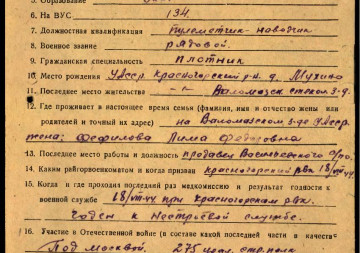 5. Образование
6. На ВУС 134
7. Должностная квалификация пулеметчик-наводчик
8. Военное звание рядовой.
9. Гражданская специальность плотник
10. Место рождения УАССР Красногорский р-н д. Мухино
11. Последнее место жительства -"- Валамазск стекол з-д.
12. Где проживает в настоящее время семья (фамилия, имя и отчество жены или
родителей и точный их адрес) на Валамазском з-де УАССР
жена: Фефилова Лима Федоровна
13. Последнее место работы и должность продавец
14. Каким райгорвоенкоматом и когда призван Красногорский рвк 18/VII 44
15. Когда и где проходил последний раз медкомиссию и результат годности к
военной службе 18/VII-44 при Красногорском рвк.
Годен к нестроевой службе.
16. Участие в Отечественной войне (в составе какой последней части и в качестве
Под Москвой, 275 стр. полк